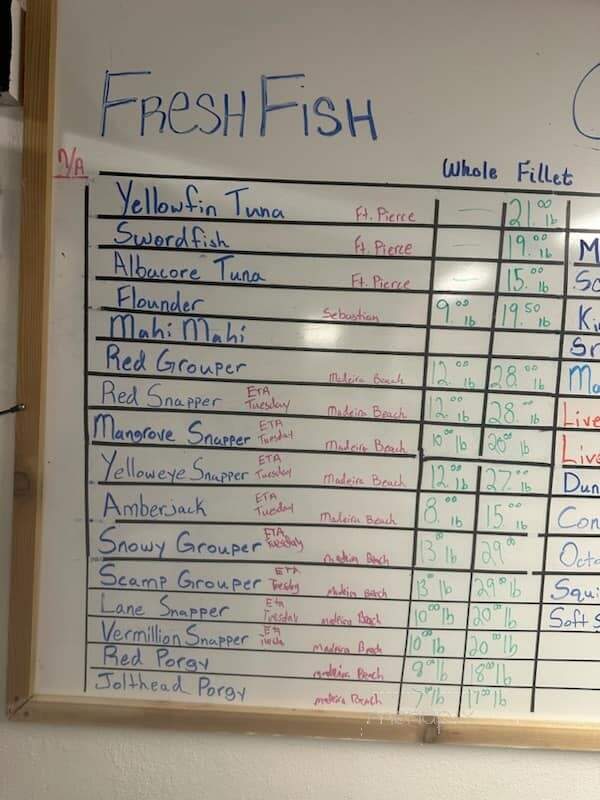 FRESH FISH
N/A
Whole Fillet
Yellowfin Tuna Ft. Pierce — 21.00 lb
Swordfish Ft. Pierce — 19.00 lb M
Albacore Tuna Ft. Pierce — 15.00 lb Sc
Flounder Sebastian 9.00 lb 19.50 lb Ki
Mahi Mahi Sr
Red Grouper Madeira Beach 12.00 lb 28.00 lb Ma
Red Snapper ETA Tuesday Madeira Beach 12.00 lb 28.00 lb Live
Mangrove Snapper ETA Tuesday Madeira Beach 10.00 lb 20.00 lb Live
Yelloweye Snapper ETA Tuesday Madeira Beach 12.00 lb 27.00 lb Dun
Amberjack ETA Tuesday Madeira Beach 8.00 lb 15.00 lb Con
Snowy Grouper ETA Tuesday Madeira Beach 13.00 lb 29.00 Octo
Scamp Grouper ETA Tuesday Madeira Beach 13.00 lb 29.00 lb Squi
Lane Snapper ETA Tuesday Madeira Beach 10.00 lb 20.00 lb Soft S
Vermillion Snapper ETA Tuesday Madeira Beach 10.00 lb 20.00 lb
Red Porgy Madeira Beach 8.00 lb 18.00 lb
Jolthead Porgy Madeira Beach 7.00 lb 17.00 lb